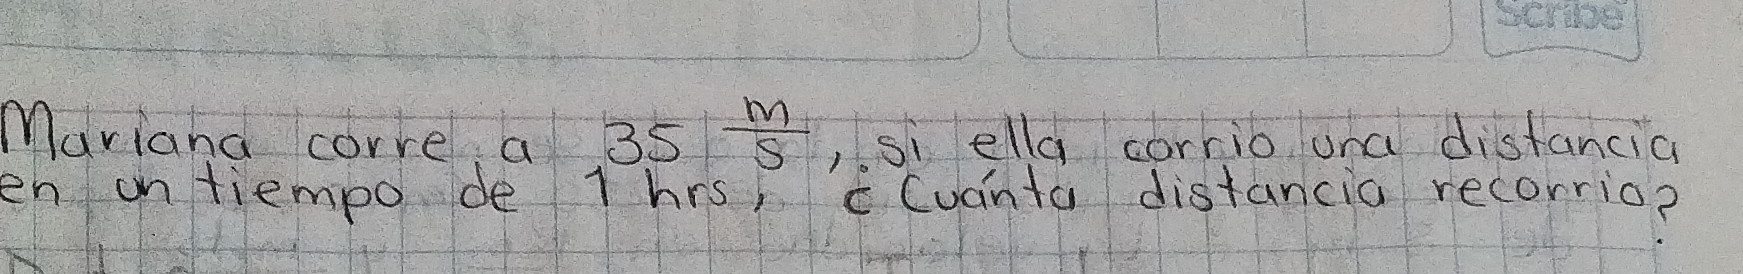 Scribe
Mariana corre a 35 m/s, si ella corrio una distancia
en un tiempo de 1 hrs, ¿Cuánta distancia recorrio?